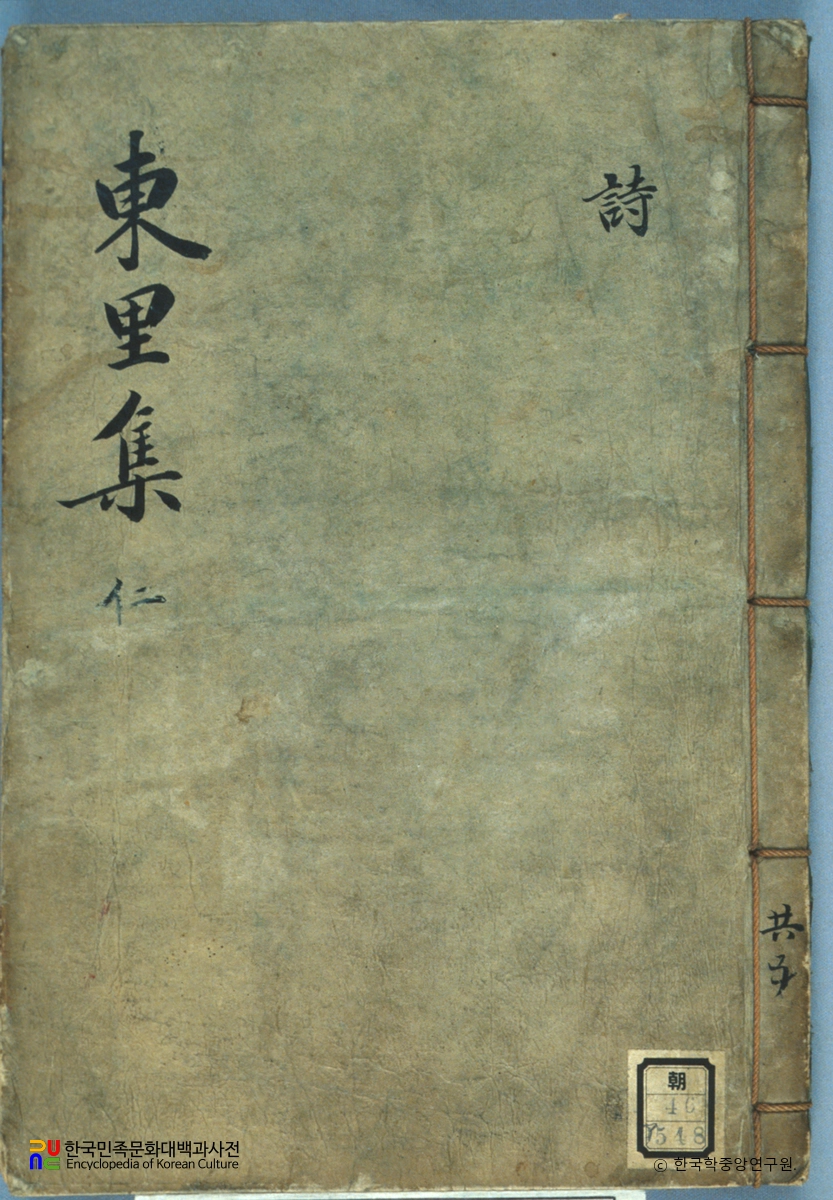 東里集 仁
詩
共五
朝
46
548
한국민족문화대백과사전
Encyclopedia of Korean Culture
ⓒ 한국학중앙연구원.